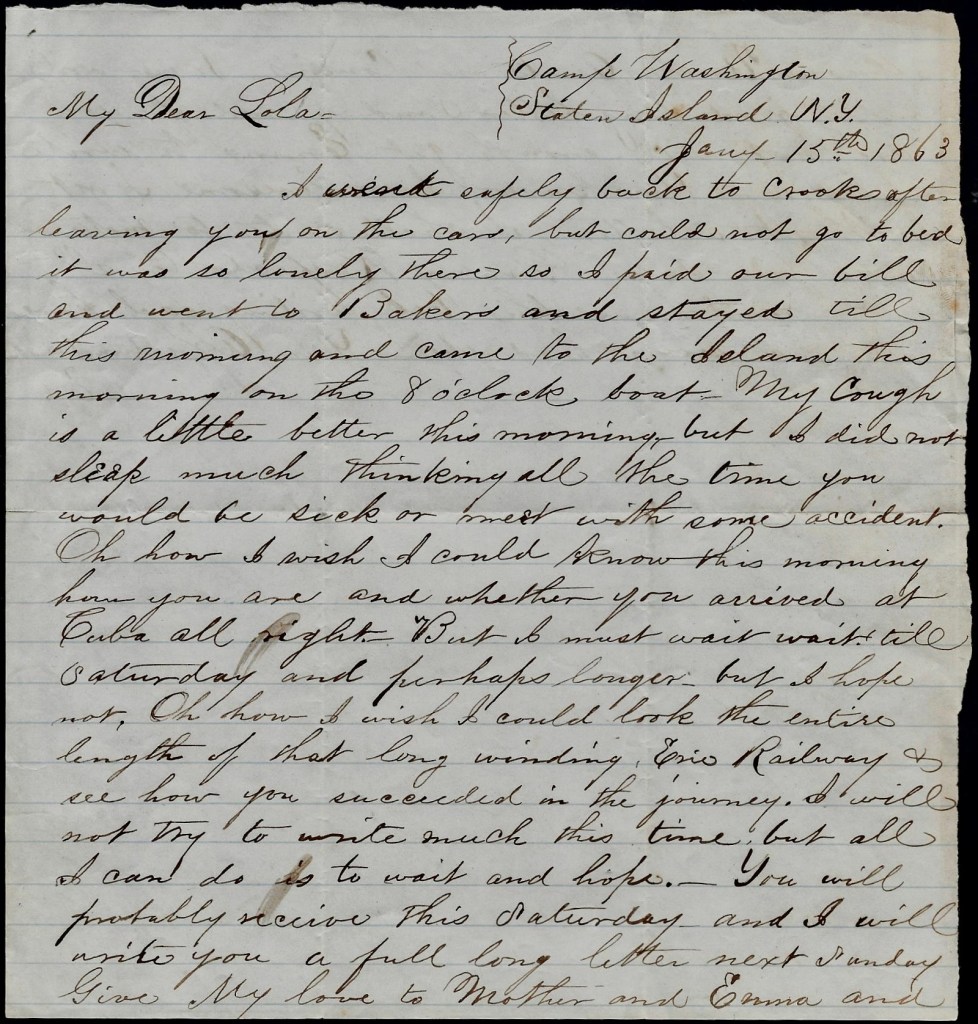 Camp Washington
My Dear Lola- Staten Island N.Y.
Jany- 15th 1863
I went safely back to Crooks after
leaving you on the cars, but could not go to bed
it was so lonely there so I paid our bill
and went to Bakers and stayed till
this morning and came to the Island this
morning on the 8 o'clock boat- My Cough
is a little better this morning, but I did not
sleep much thinking all the time you
would be sick or meet with some accident.
Oh how I wish I could know this morning
how you are and whether you arrived at
Cuba all right- But I must wait wait till
Saturday and perhaps longer- but I hope
not, Oh how I wish I could look the entire
length of that long winding, Erie Railway &
see how you succeeded in the journey. I will
not try to write much this time, but all
I can do is to wait and hope.- You will
probably receive this Saturday- and I will
write you a full long letter next Sunday
Give My love to Mother and Emma and